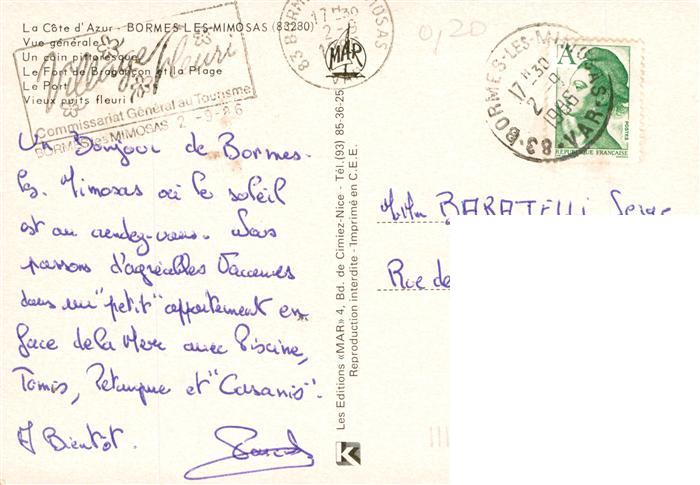 La Côte d'Azur - BORMES LES MIMOSAS (83230)
Vue générale
Un coin pittoresque
Le Fort de Bregançon et la Plage
Le Port
Vieux puits fleuri
Village fleuri
Commissariat Général au Tourisme
BORMES les MIMOSAS 2-9-86
83 BORMES-LES-MIMOSAS
17 H -30
2 - 9
VAR
MAR
0,20
BORMES-LES-MIMOSAS
17 H -30
2 - 9
1986
83 - VAR
A
POSTES
REPUBLIQUE FRANÇAISE
Un Bonjour de Bormes
les Mimosas où le soleil
est au rendez-vous. Nous
passons d'agréables Vacances
dans un "petit" appartement en
face de la Mer avec Piscine,
Tennis, Petanque et "Casanis".
A Bientôt.
Les Editions «MAR» 4, Bd. de Cimiez-Nice - Tél.(93) 85-36-25
Reproduction interdite - Imprimé en C.E.E.
K
BARATELLI Serge
Rue de